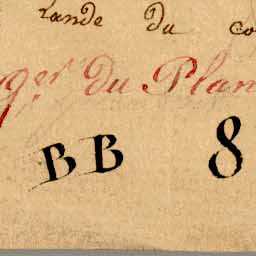 Lande du co
ger du Plan
BB 8